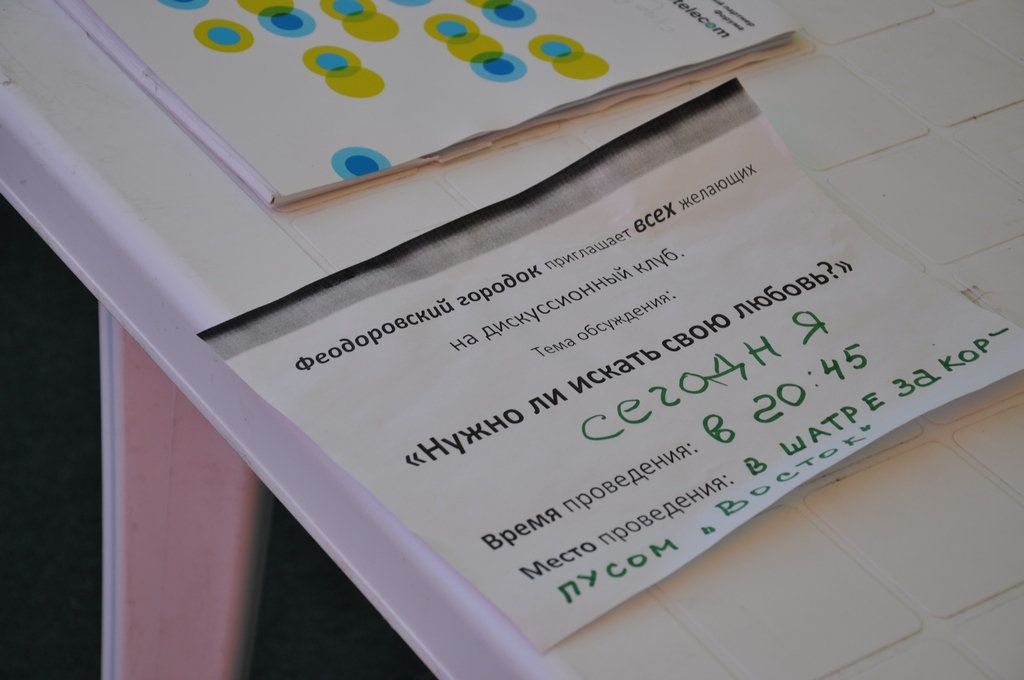 telecom
Феодоровский городок приглашает всех желающих
на дискуссионный клуб.
Тема обсуждения:
«Нужно ли искать свою любовь?»
СЕГОДНЯ
Время проведения: в 20:45
Место проведения: В ШАТРЕ ЗА КОР-
ПУСОМ „ВОСТОК"